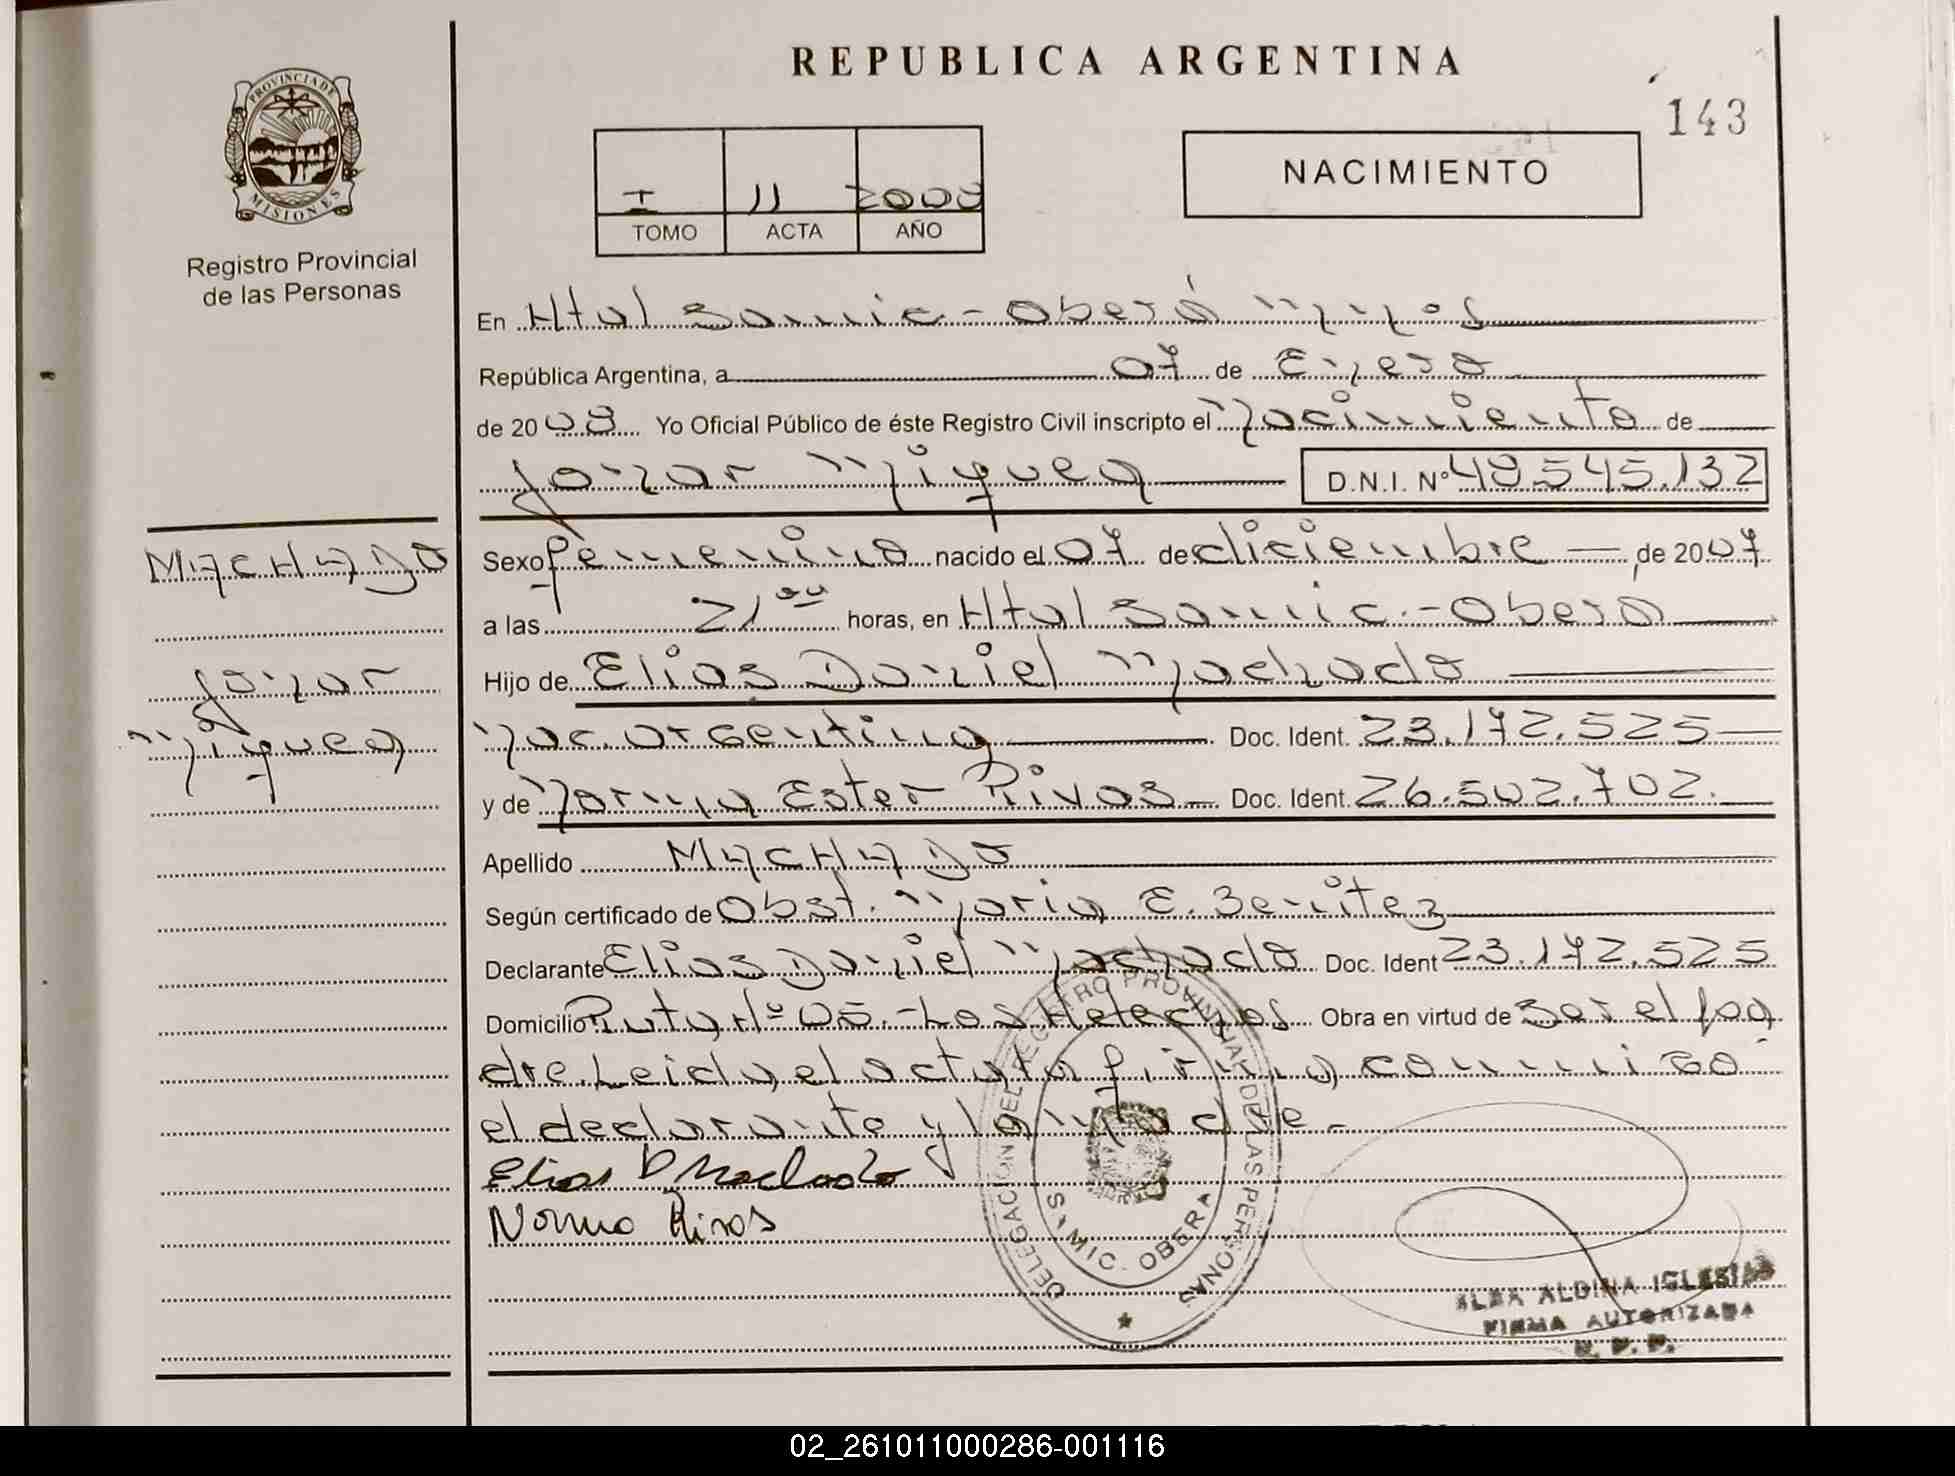 REPUBLICA ARGENTINA
143
PROVINCIA DE
MISIONES
Registro Provincial
de las Personas
I 11 2008
TOMO ACTA AÑO
NACIMIENTO
En Htal Samic - Oberá Mnes
República Argentina, a 07 de Enero
de 2008 Yo Oficial Público de éste Registro Civil inscripto el Nacimiento de
D.N.I. Nº 48.545.132
MACHADO
Sexo femenino nacido el 07 de diciembre de 2007
a las 21 00 horas, en Htal Samic - Obera
Hijo de Elias Daniel Machado
Nac. Argentina Doc. Ident. 23.172.525
y de Norma Ester Rivas Doc. Ident. 26.502.702.
Apellido MACHADO
Según certificado de Obst. Maria E. Benitez
Declarante Elias Daniel Machado Doc. Ident 23.172.525
Domicilio Ruta Nº 05 - Los Helechos Obra en virtud de Ser el pa
dre. Leida el acta la firma conmigo
el declarante y la madre -
Elias D Machado
Norma Rivas
DELEGACION DEL REGISTRO PROVINCIAL DE LAS PERSONAS
SAMIC. OBERA
ALBA ALDINA IGLESIAS
FIRMA AUTORIZADA
R. P. P.
02_261011000286-001116